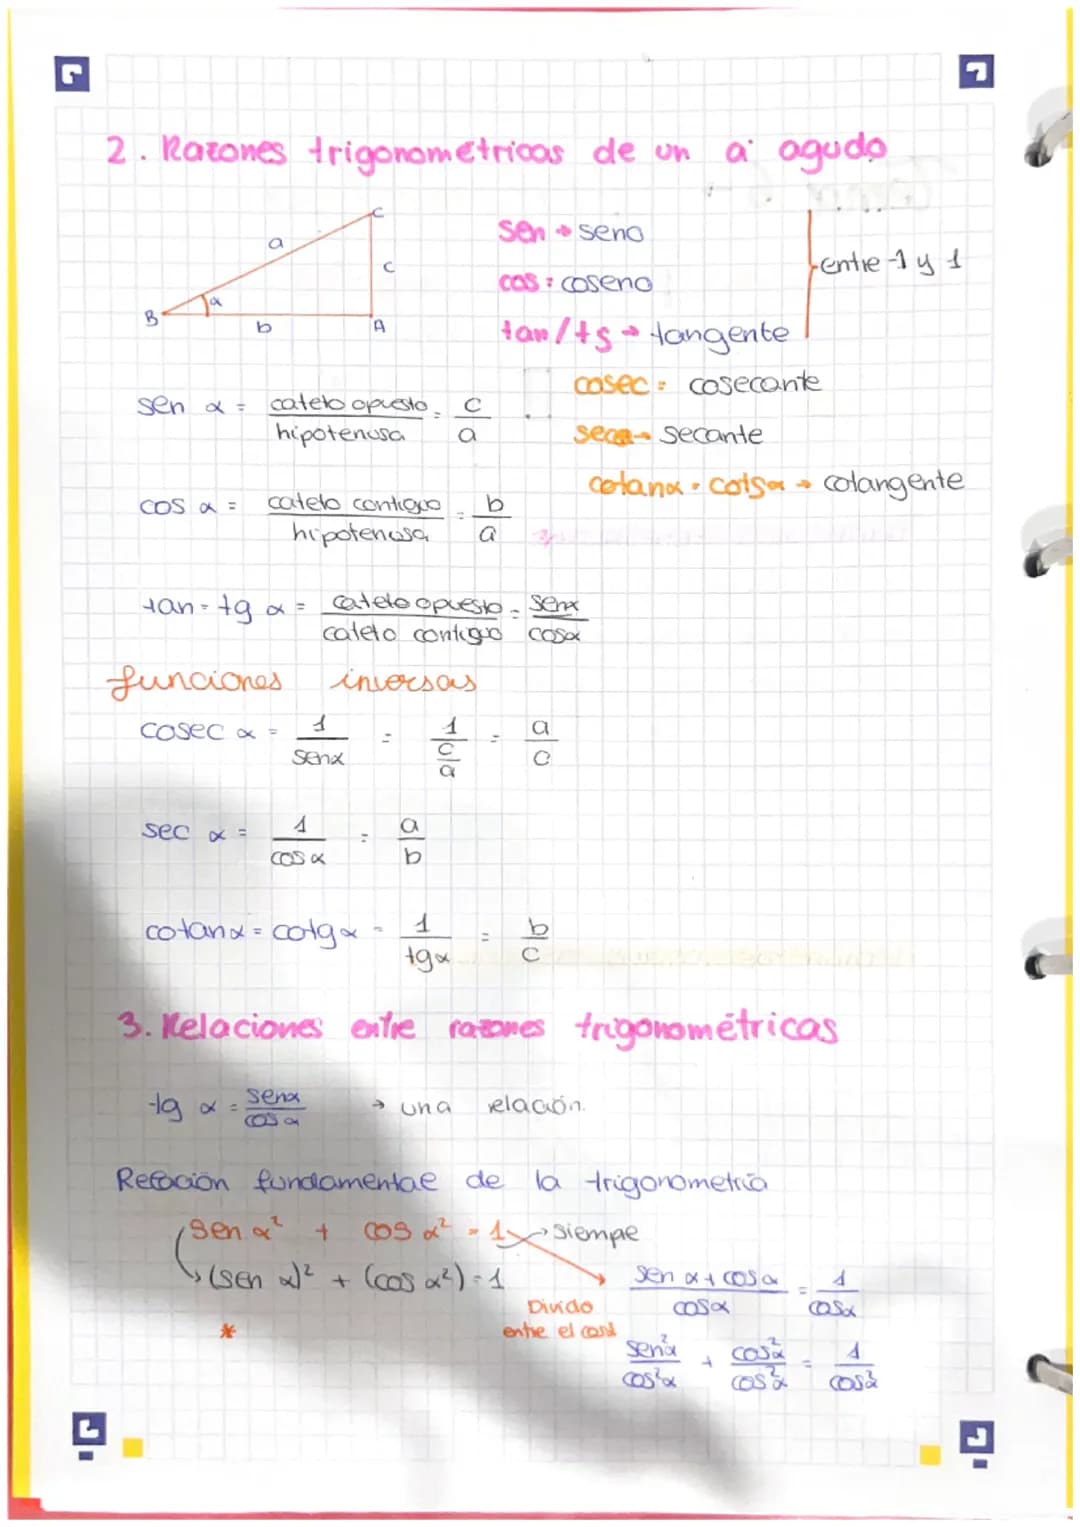 2. Razones trigonométricas de un a agudo
C
a
c
α
B
b
A
sen → seno
cos = coseno
tan/tg → tangente
entre -1 y 1
cosec = cosecante
sec → secante
cotanα = cotgα → cotangente
sen α = cateto opuesto / hipotenusa = c / a
cos α = cateto contiguo / hipotenusa = b / a
tan = tg α = cateto opuesto / cateto contiguo = senα / cosα
funciones inversas
cosec α = 1 / senα = 1 / c/a = a / c
sec α = 1 / cos α = a / b
cotanα = cotgα = 1 / tgα = b / c
3. Relaciones entre razones trigonométricas
tg α = senα / cos α → una relación.
Relación fundamental de la trigonometría
sen α² + cos α² = 1 → siempre
(sen α)² + (cos α²) = 1
Divido
entre el
sen α + cos α / cosα = 1 / cosα
sen²α / cos²α + cos²α / cos²α = 1 / cos²α
*